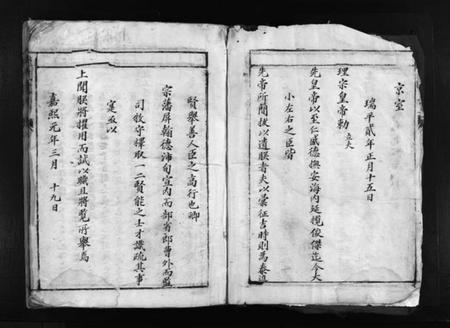 京室
瑞平貳年正月十五日
理宗皇帝勅
立夫
先皇帝以至仁盛德撫安海內延攬俊傑迄今大
小左右之臣皆
先帝所簡拔以遺朕者夫以彙征吉時則為泰進
賢舉善人臣之高行也卿
宗潘屏翰德沛旬宣內而部省郎曹外而監
司牧守擇取一二賢能之士才識疏其事
寔並以
上聞朕將擢用而試以職且將覽所舉焉
嘉熙元年三月 十九日